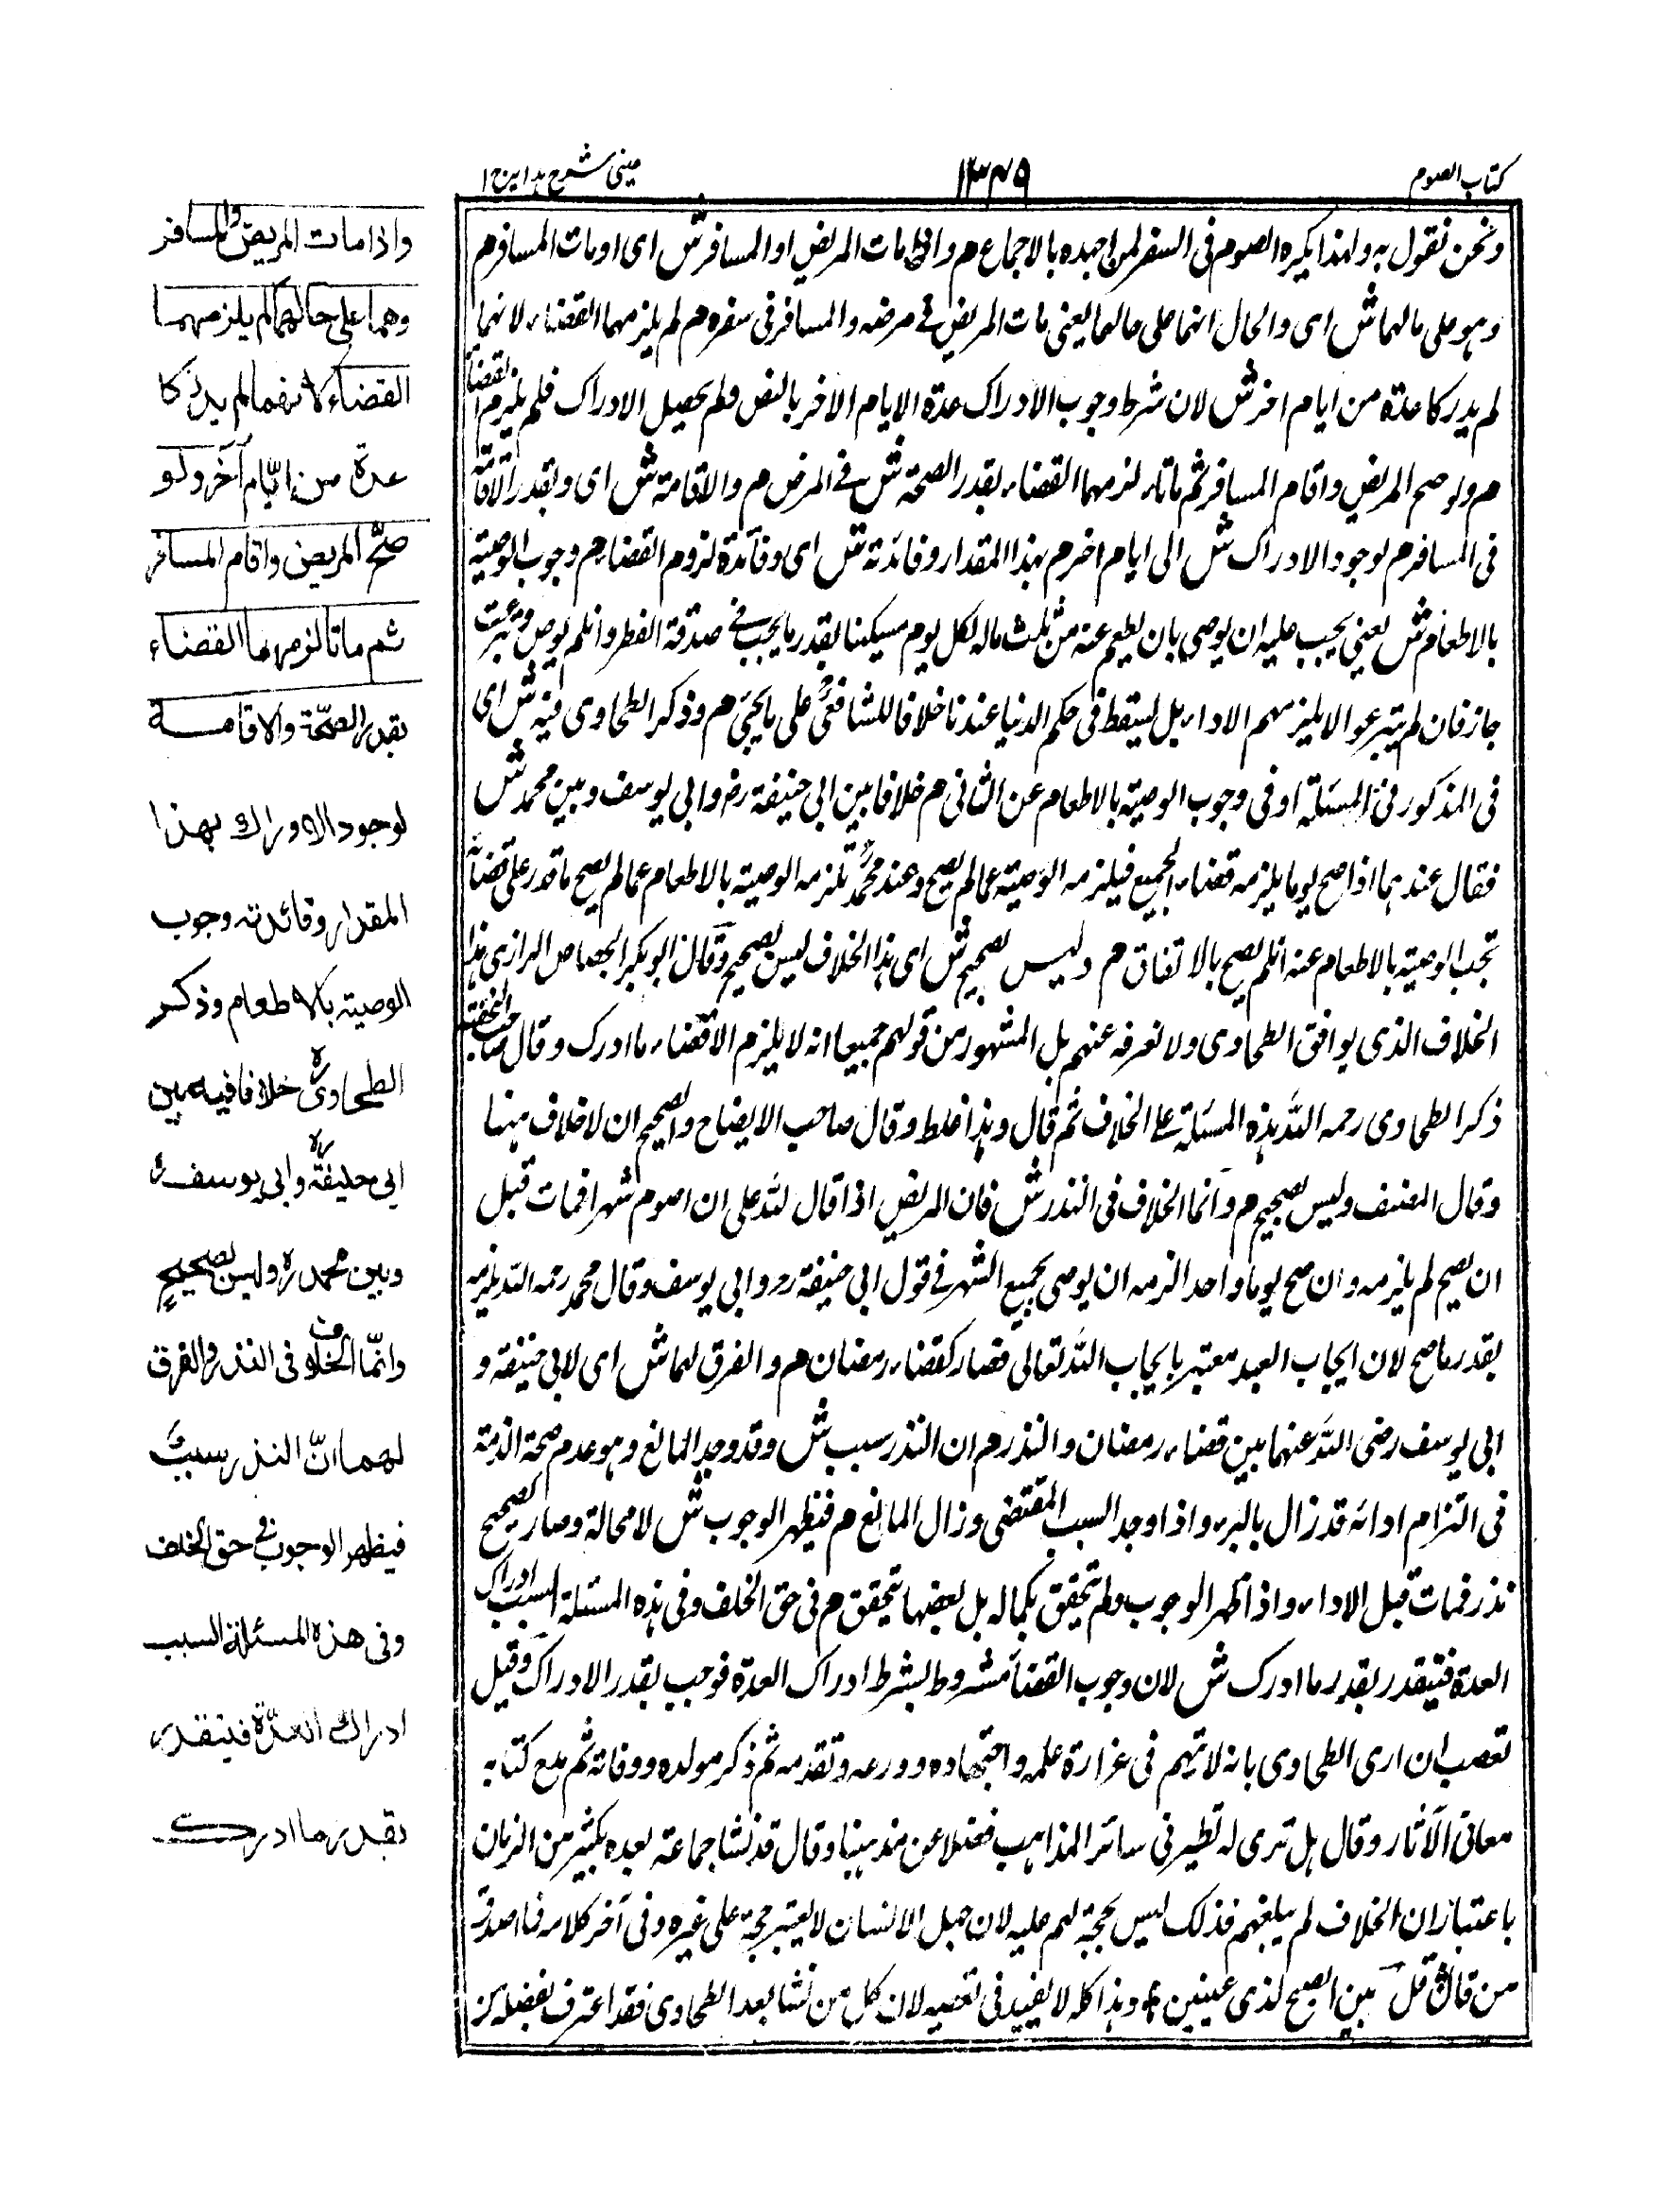 كتاب الصوم
١٣٤٩
عينى شرح هداية ج ١
ونحن نقول به ولهذا يكره الصوم فى السفر لمن اجهده بالاجماع م واذا مات المريض او المسافر ش اى او مات المسافر م
وهو على حالهما ش اى والحال انهما على حالهما يعنى مات المريض فى مرضه والمسافر فى سفره م لم يلزمهما القضاء لانهما
لم يدركا عدة من ايام اخر ش لان شرط وجوب الادراك عدة الايام الاخر بالنص ولم يحصل الادراك فلم يلزم القضاء
م ولو صح المريض واقام المسافر ثم ماتا لزمهما القضاء بقدر الصحة ش فى المرض م والاقامة ش اى وبقدر الاقامة
فى المسافر م لوجود الادراك ش الى ايام اخر م بهذا المقدار وفائدته ش اى وفائدة لزوم القضاء م وجوب الوصية
بالاطعام ش يعنى يجب عليه ان يوصى بان يطعم عنه من ثلث ماله لكل يوم مسكينا بقدر ما يجب فى صدقة الفطر وان لم يوص وتبرعت
جاز فان لم يتبرعوا لا يلزمهم الاداء بل يسقط فى حكم الدنيا عندنا خلافا للشافعى على ما يجئ م وذكر الطحاوى فيه ش اى
فى المذكور فى المسئلة او فى وجوب الوصية بالاطعام عن الثانى م خلافا بين ابى حنيفة رض وابى يوسف وبين محمد ش
فقال عندهما اذا صح يوما يلزمه قضاء الجميع فيلزمه الوصية عما لم يصح وعند محمد تلزمه الوصية بالاطعام عما لم يصح ما قدر على قضائه
تجب الوصية بالاطعام عنه ان لم يصح بالاتفاق م وليس بصحيح ش اى هذا الخلاف ليس بصحيح وقال ابو بكر الجصاص الرازى هذا
الخلاف الذى يوافق الطحاوى ولا نعرفه عنهم بل المشهور من قولهم جميعا انه لا يلزم الا قضاء ما ادرك وقال صاحب التحفة
ذكر الطحاوى رحمه الله هذه المسئلة على الخلاف ثم قال وهذا غلط وقال صاحب الايضاح والصحيح ان لا خلاف ههنا
وقال المصنف وليس بصحيح م وانما الخلاف فى النذر ش فان المريض اذا قال لله على ان اصوم شهرا فمات قبل
ان يصح لم يلزمه وان صح يوما واحدا لزمه ان يوصى بجميع الشهر فى قول ابى حنيفة رح وابى يوسف وقال محمد رحمه الله يلزمه
بقدر ما صح لان ايجاب العبد معتبر بايجاب الله تعالى فصار كقضاء رمضان م والفرق لهما ش اى لابى حنيفة و
ابى يوسف رضى الله عنهما بين قضاء رمضان والنذر م ان النذر سبب ش وقد وجد المانع وهو عدم صحة الذمة
فى التزام ادائه قد زال بالبرء واذا وجد السبب المقتضى وزال المانع م فيظهر الوجوب ش لا محالة وصار كصحيح
نذر فمات قبل الاداء واذا ظهر الوجوب ولم يتحقق بكماله بل بعضها يتحقق م فى حق الخلف وفى هذه المسئلة السبب ادراك
العدة فيتقدر بقدر ما ادرك ش لان وجوب القضاء مشروط بشرط ادراك العدة فوجب بقدر الادراك وقيل
تعصب ان ارى الطحاوى بانه لا يتهم فى غزارة علمه واجتهاده وورعه وتقدمه ثم ذكر مولده ووفاته ثم مدح كتابه
معانى الآثار وقال هل ترى له نظير فى سائر المذاهب فضلا عن مذهبنا وقال قد نشا جماعة بعده بكثير من الزمان
باعتبار ان الخلاف لم يبلغهم فذلك ليس بحجة لهم عليه لان جهل الانسان لا يعتبر حجة على غيره وفى آخر كلامه فما اصدق
من قال قل بين الصبح لذى عينين وهذا كله لا يفيد فى تعصبه لان كل من نشا بعد الطحاوى فقد اعترف بفضله
واذا مات المريض والمسافر
وهما على حالهما لم يلزمهما
القضاء لانهما لم يدركا
عدة من ايّام أخر ولو
صحّ المريض واقام المسافر
ثم ماتا لزمهما القضاء
بقدر الصحّة والاقامـة
لوجود الادراك بهذا
المقدار وفائدته وجوب
الوصية بالاطعام وذكر
الطحاوىؒ خلافا فيه بين
ابى حنيفةؒ وابى يوسفؒ
وبين محمدؒ وليس بصحيحٍ
وانّما الخلاف فى النذر والفرق
لهما انّ النذر سببٌ
فيظهر الوجوب فى حق الخلف
وفى هذه المسئلة السبب
ادراك العدّة فيتقدر
بقدر ما ادرك